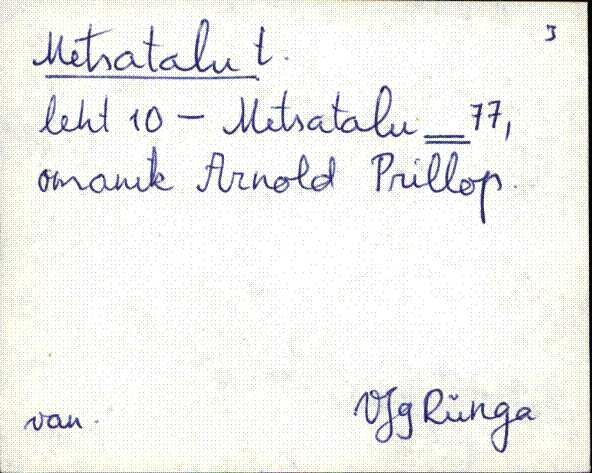 3
Metsatalu t.
leht 10 – Metsatalu __ 77,
omanik Arnold Prillop.
van. VJg Rõnga